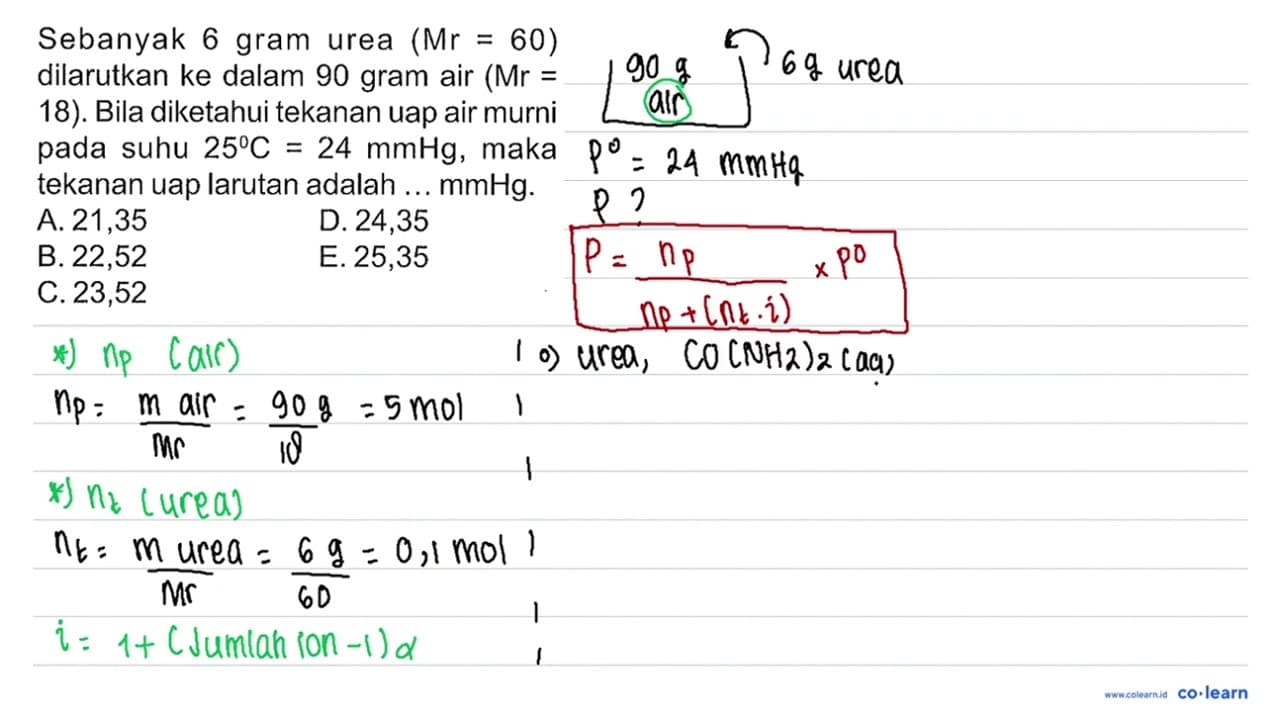 Sebanyak 6 gram urea (Mr = 60)
dilarutkan ke dalam 90 gram air (Mr =
18). Bila diketahui tekanan uap air murni
pada suhu 25⁰C = 24 mmHg, maka
tekanan uap larutan adalah ... mmHg.
A. 21,35 D. 24,35
B. 22,52 E. 25,35
C. 23,52
90 g 6 g urea
air
P° = 24 mmHg
P ?
P = np / np + (nt . i) × P°
*) np (air)
np = m air / Mr = 90 g / 18 = 5 mol
*) nt (urea)
nt = m urea / Mr = 6 g / 60 = 0,1 mol
i = 1 + (Jumlah ion - 1) α
o) urea, CO(NH2)2 (aq)
www.colearn.id co·learn